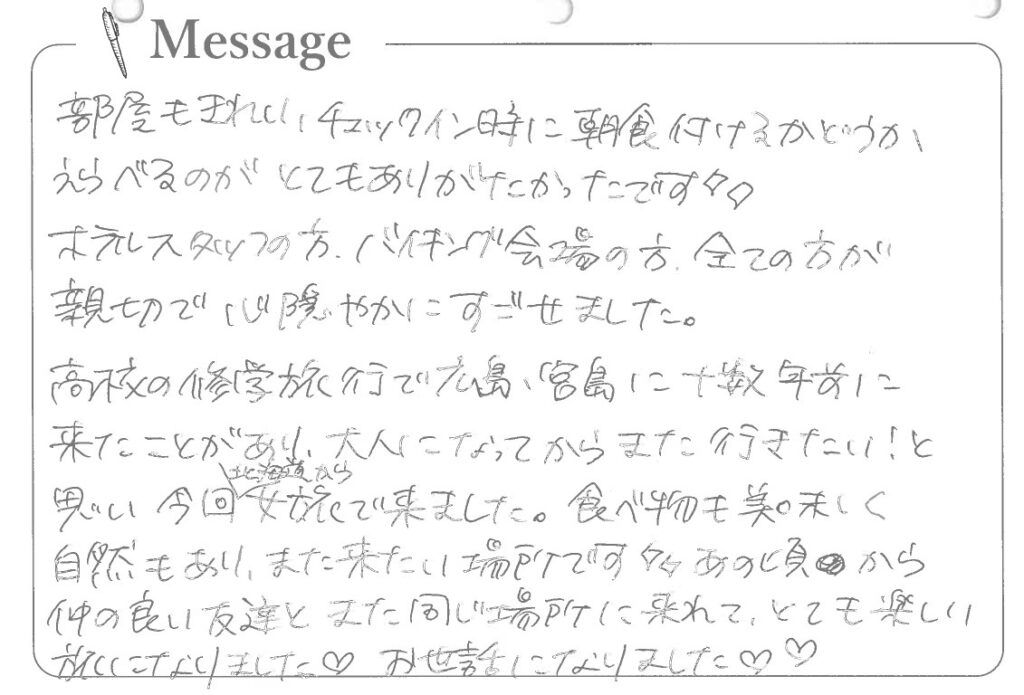 Message
部屋もきれいし、チェックイン時に朝食付けるかどうか、
えらべるのがとてもありがたかったです♡♡
ホテルスタッフの方、バイキング会場の方、全ての方が
親切で心隠やかにすごせました。
高校の修学旅行で広島、宮島に十数年前に
来たことがあり、大人になってからまた行きたい!と
北海道から
思い今回女旅で来ました。食べ物も美味しく
自然もあり、また来たい場所です々々あの頃から
仲の良い友達とまた同じ場所に来れて、とても楽しい
旅になりました♡ お世話になりました♡♡